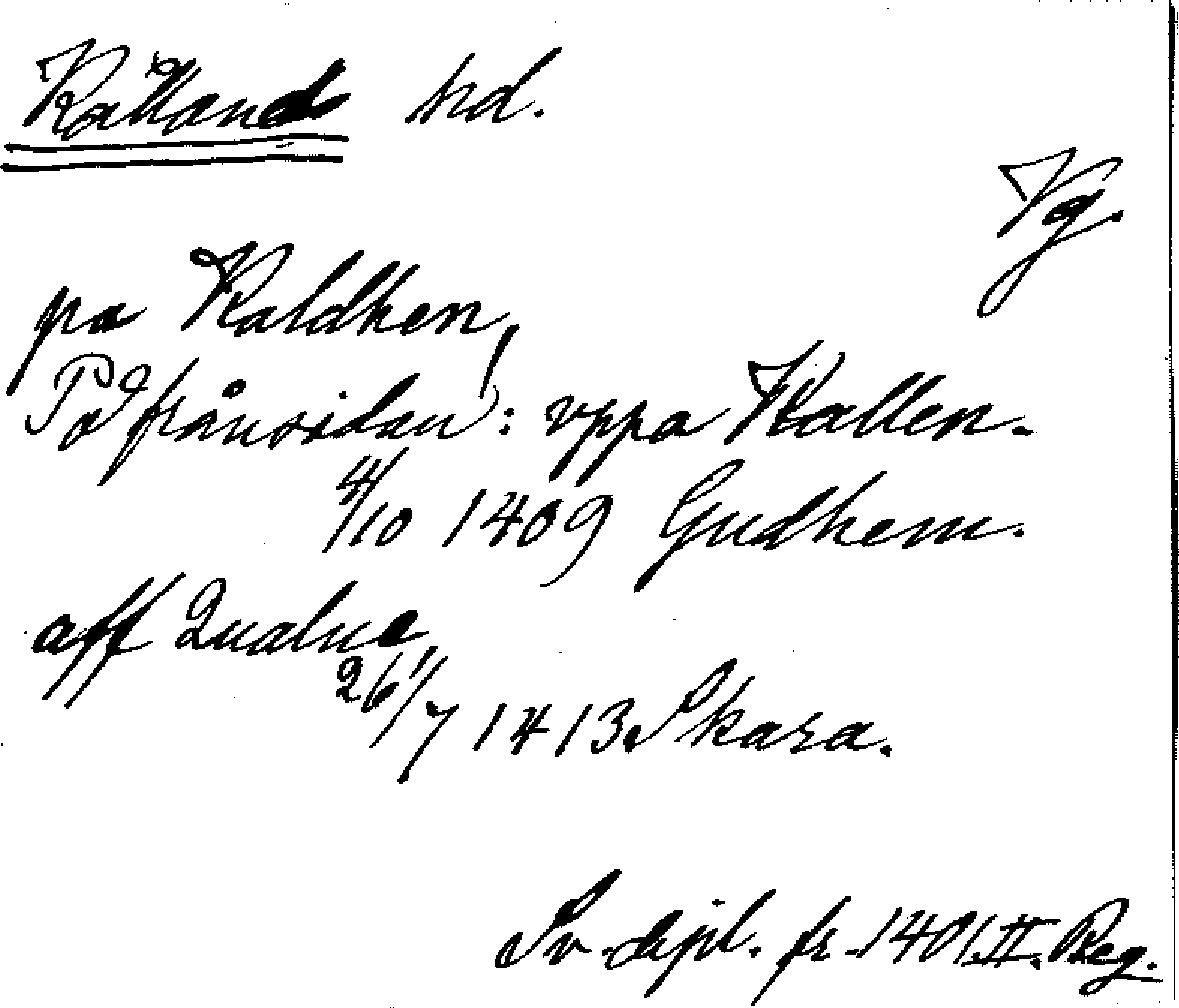 Kålland hrd.
Vg.
pa Kaldhen,
På frånsidan: vppa Kallen.
4/10 1409 Gudhem.
aff Qualne
26/7 1413 Skara.
Sv. dipl. fr. 1401. II. Reg.